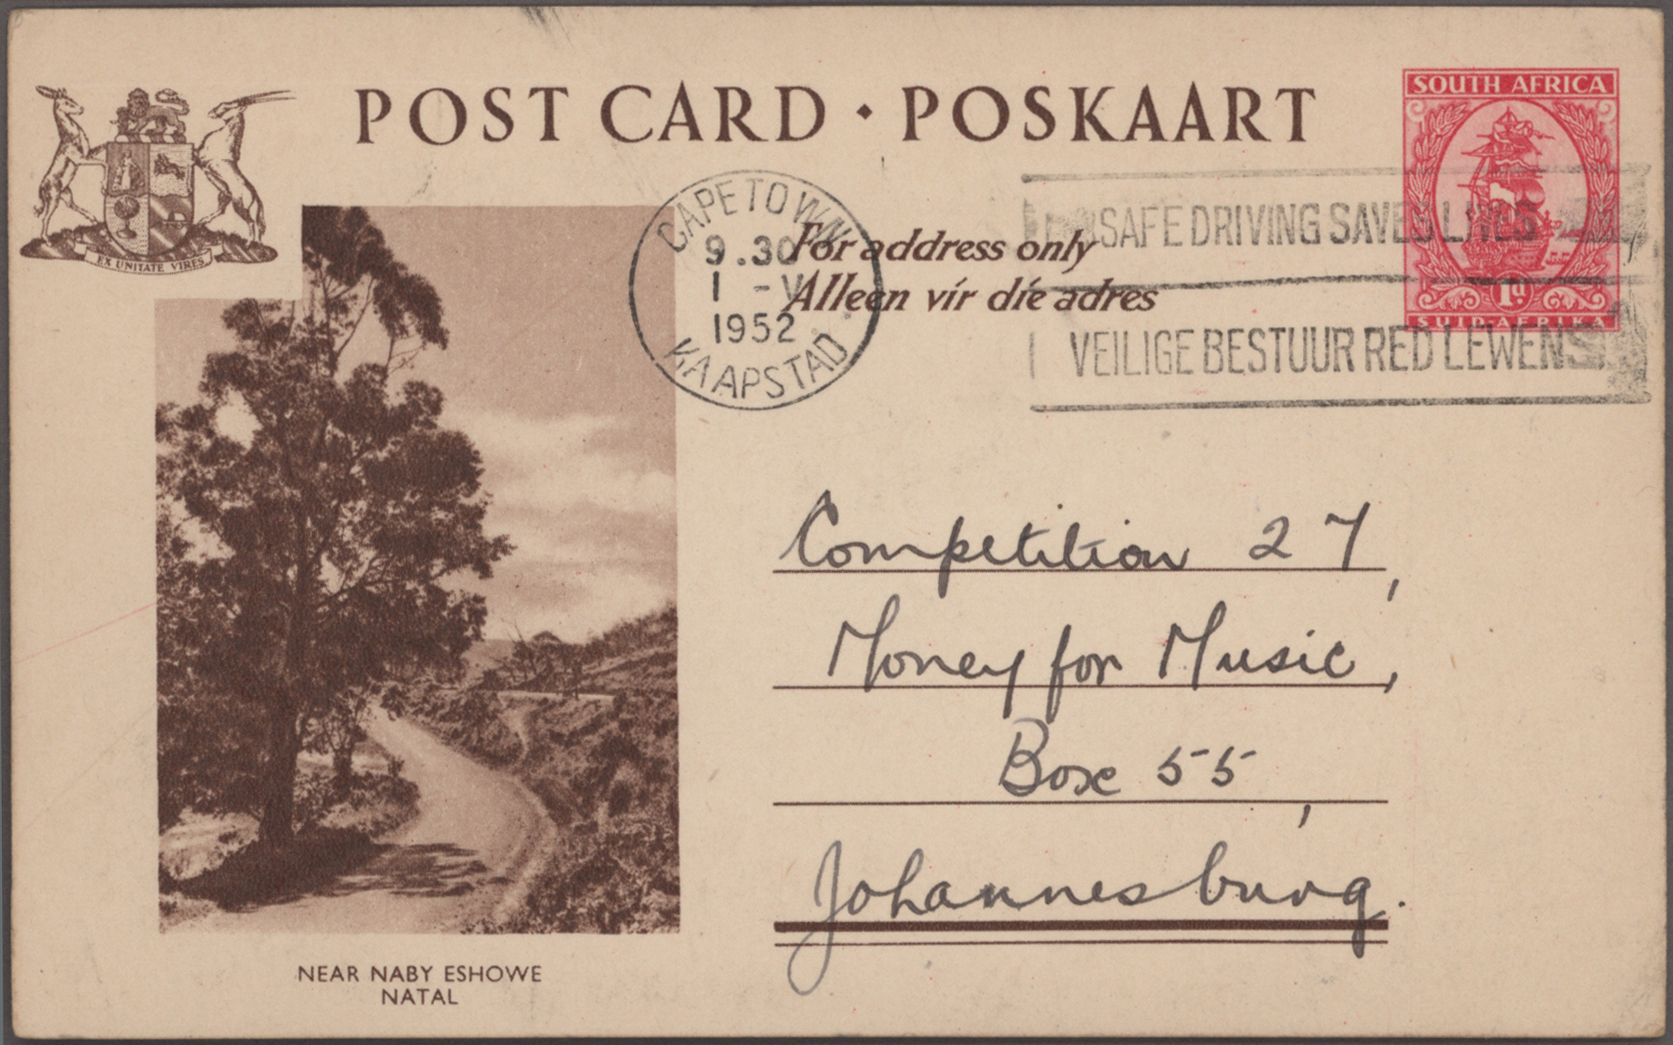 POST CARD · POSKAART
SOUTH AFRICA
1D
SUID-AFRIKA
EX UNITATE VIRES
CAPE TOWN
9.30
1 -V
1952
KAAPSTAD
SAFE DRIVING SAVES LIVES
VEILIGE BESTUUR RED LEWENS
For address only
Alleen vir die adres
Competition 27,
Money for Music,
Box 55,
Johannesburg.
NEAR NABY ESHOWE
NATAL